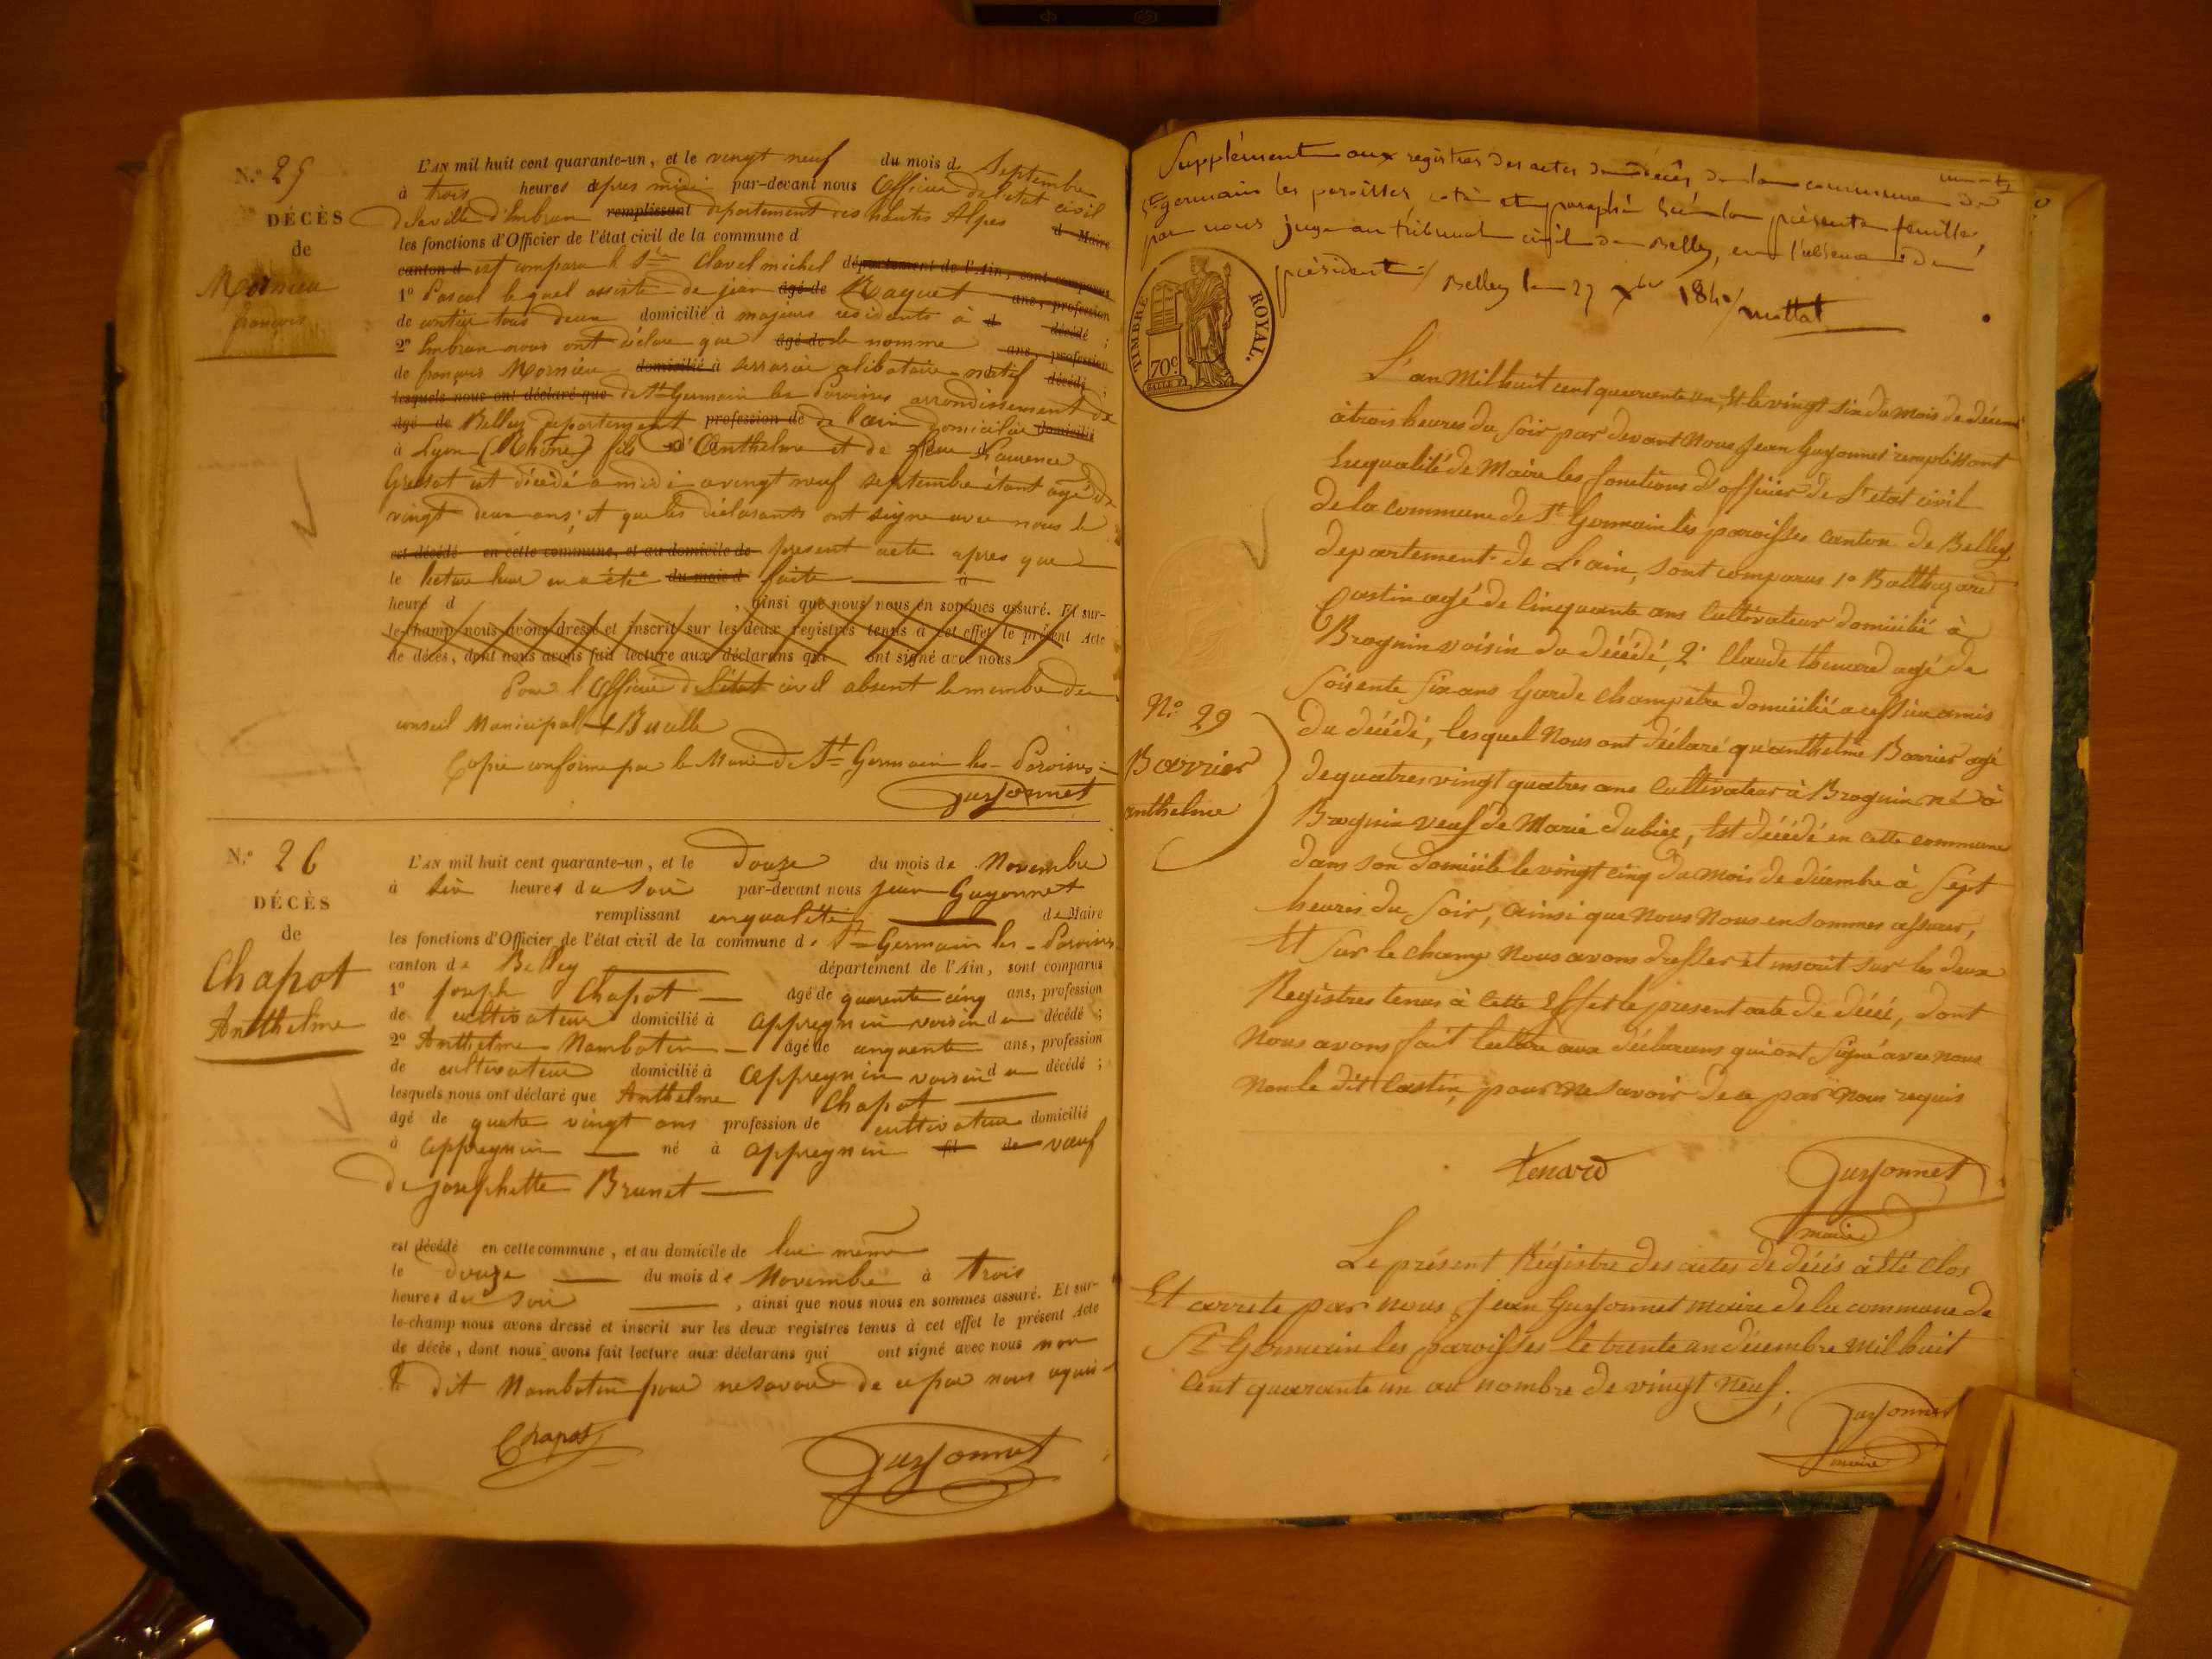 N.° 25
DÉCÈS
de
Mornieu
françois
L'AN mil huit cent quarante-un, et le vingt neuf du mois de Septembre
à trois heures après midi par-devant nous Officier de l'état civil
de la ville d'Embrun remplissant département des hautes Alpes d Maire
les fonctions d'Officier de l'état civil de la commune d
canton d est comparu le Clavel michel département de l'Ain, sont comparus
1° Pascal lequel assisté de jean âgé de Naquet ans, profession
de tous deux domicilié à majeurs résidents à d décédé ;
2° Embrun nous ont déclaré que âgé de le nommé ans, profession
de françois Mornieu domicilié à célibataire natif décédé ;
lesquels nous ont déclaré que de St Germain les Paroisses arrondissement de
âgé de Belley département profession de de l'ain domicilié domicilié
à Lyon (Rhône) fils d'Anthelme et de Laurence
est décédé à midi vingt neuf septembre étant âgé de
vingt deux ans, et que les déclarants ont signé avec nous le
est décédé en cette commune, et au domicile de présent acte après que
lecture leur en a été du mois d faite à
heure d , ainsi que nous nous en sommes assuré. Et sur-
le-champ nous avons dressé et inscrit sur les deux registres tenus à cet effet le présent Acte
de décès, dont nous avons fait lecture aux déclarans qui ont signé avec nous
Pour l'Officier de l'état civil absent le membre du
conseil Municipal
Copie conforme par le Maire de St Germain les Paroisses
Guyonnet
N.° 26
DÉCÈS
de
Chapot
Anthelme
L'AN mil huit cent quarante-un, et le douze du mois de Novembre
à six heures du soir par-devant nous jean Guyonnet
remplissant en qualité de Maire
les fonctions d'Officier de l'état civil de la commune de St Germain les Paroisses
canton de Belley département de l'Ain, sont comparus
1° joseph Chapot âgé de quarente cinq ans, profession
de cultivateur domicilié à appregnin voisin du décédé ;
2° Anthelme Nambotin âgé de cinquente ans, profession
de cultivateur domicilié à appregnin voisin du décédé ;
lesquels nous ont déclaré que Anthelme Chapot
âgé de quatre vingt ans profession de cultivateur domicilié
à appregnin né à appregnin fil de vœuf
de josephette Brunet
est décédé en cette commune, et au domicile de lui même
le douze du mois de Novembre à trois
heures du soir , ainsi que nous nous en sommes assuré. Et sur-
le-champ nous avons dressé et inscrit sur les deux registres tenus à cet effet le présent Acte
de décès, dont nous avons fait lecture aux déclarans qui ont signé avec nous non
le dit Nambotin pour ne savoir de ce par nous requis
Chapot
Guyonnet
Supplément aux registres des actes de décès de la commune de
St germain les paroisses coté et paraphé la présente feuille,
par nous juge au tribunal civil de Belley, en l'absence du
président Belley le 27 Xbre 184 mottat
TIMBRE ROYAL.
70c
L'an Mil huit cent quarante un, Et le vingt six du mois de décembre
à trois heures du soir par devant Nous Jean Guyonnet remplissant
En qualité de Maire les fonctions d'officier de l'etat civil
de la commune de St Germain les paroisses canton de Belley
departement de L'ain, sont comparus 1° Balthazard
Castin agé de Cinquante ans Cultivateur domicilié à
Brognin voisin du décédé, 2° Claude thenard agé de
soisente six ans Garde champêtre domicilié a cessieu amis
du décédé, lesquel Nous ont déclaré qu'anthelme Barrier agé
de quatres vingt quatres ans Cultivateur à Brognin né à
Brognin veuf de Marie dubiez, Est décédé en cette commune
dans son domicile le vingt cinq du mois de décembre à Sept
heures du soir, ainsi que Nous Nous en sommes assurer,
Et sur le champ Nous avons dresser et inscrit sur les deux
Registres tenus à cette Effet le present acte de décé, dont
Nous avons fait lecture aux déclarans qui ont signé avec nous
Non le dit Castin, pour ne savoir de ce par nous requis
N° 29
Barrier
anthelme
tenard
Guyonnet
maire
Le présent Régistre des actes de décés à été Clos
Et arrete par nous, Jean Guyonnet maire de la commune de
St Germain les paroisses le trente un décembre Mil huit
Cent quarante un au nombre de vingt Neuf;
Guyonnet
maire